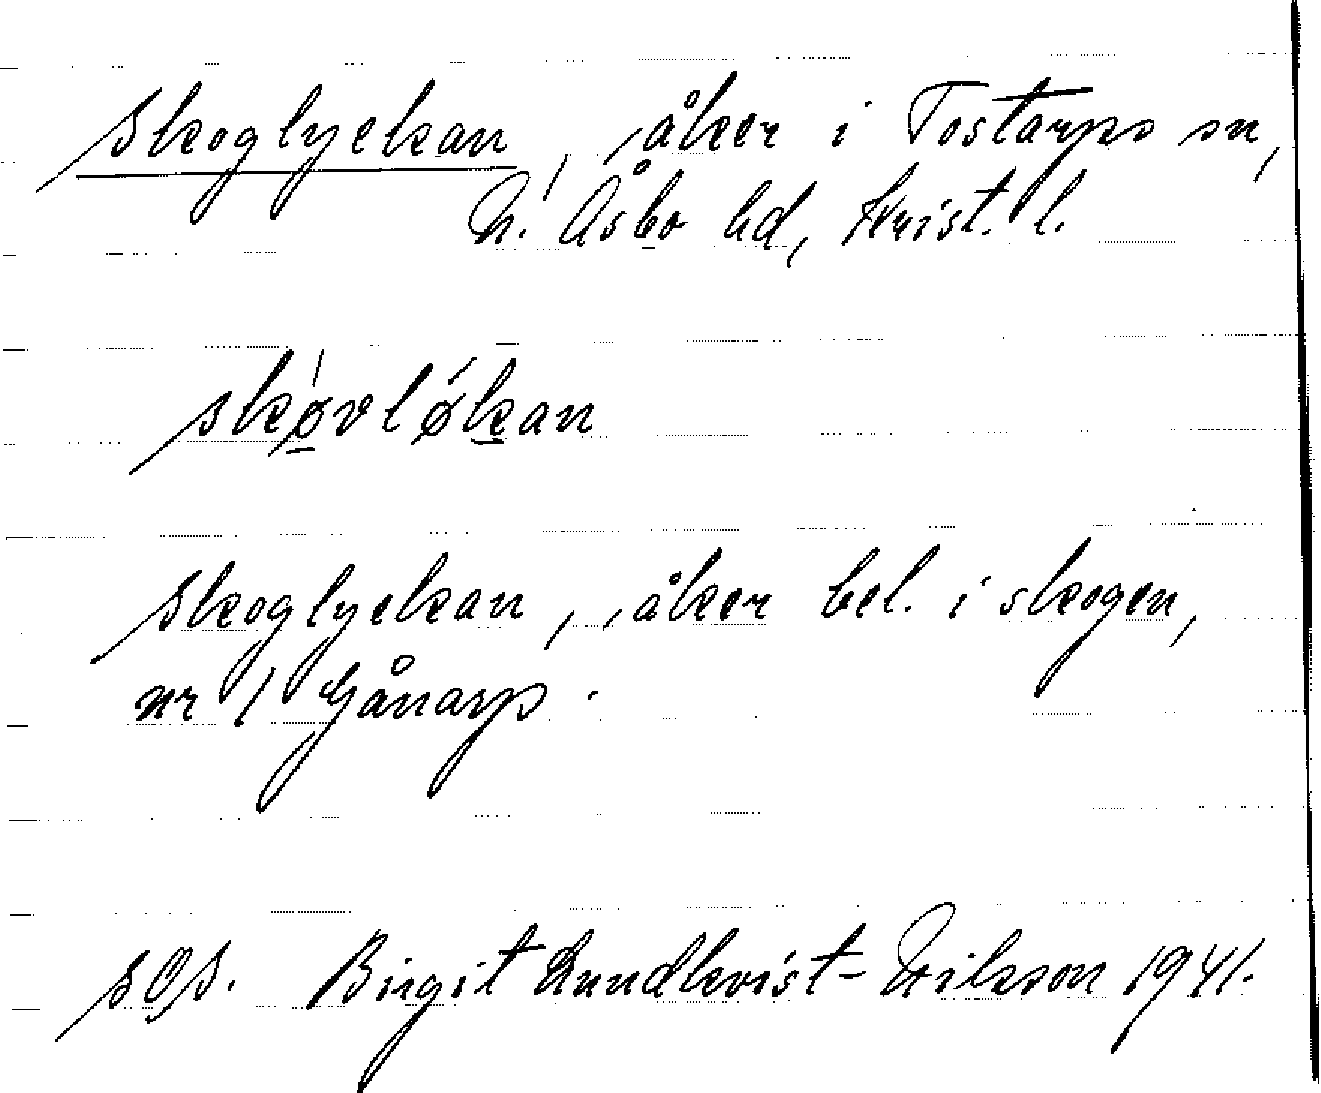 Skoglyckan, åker i Tostarps sn,
N. Åsbo hd, Krist. l.
skøvløkan
Skoglyckan, åker bel. i skogen,
nr 1 Gånarp.
Birgit Lundkvist-Nilsson 1941.